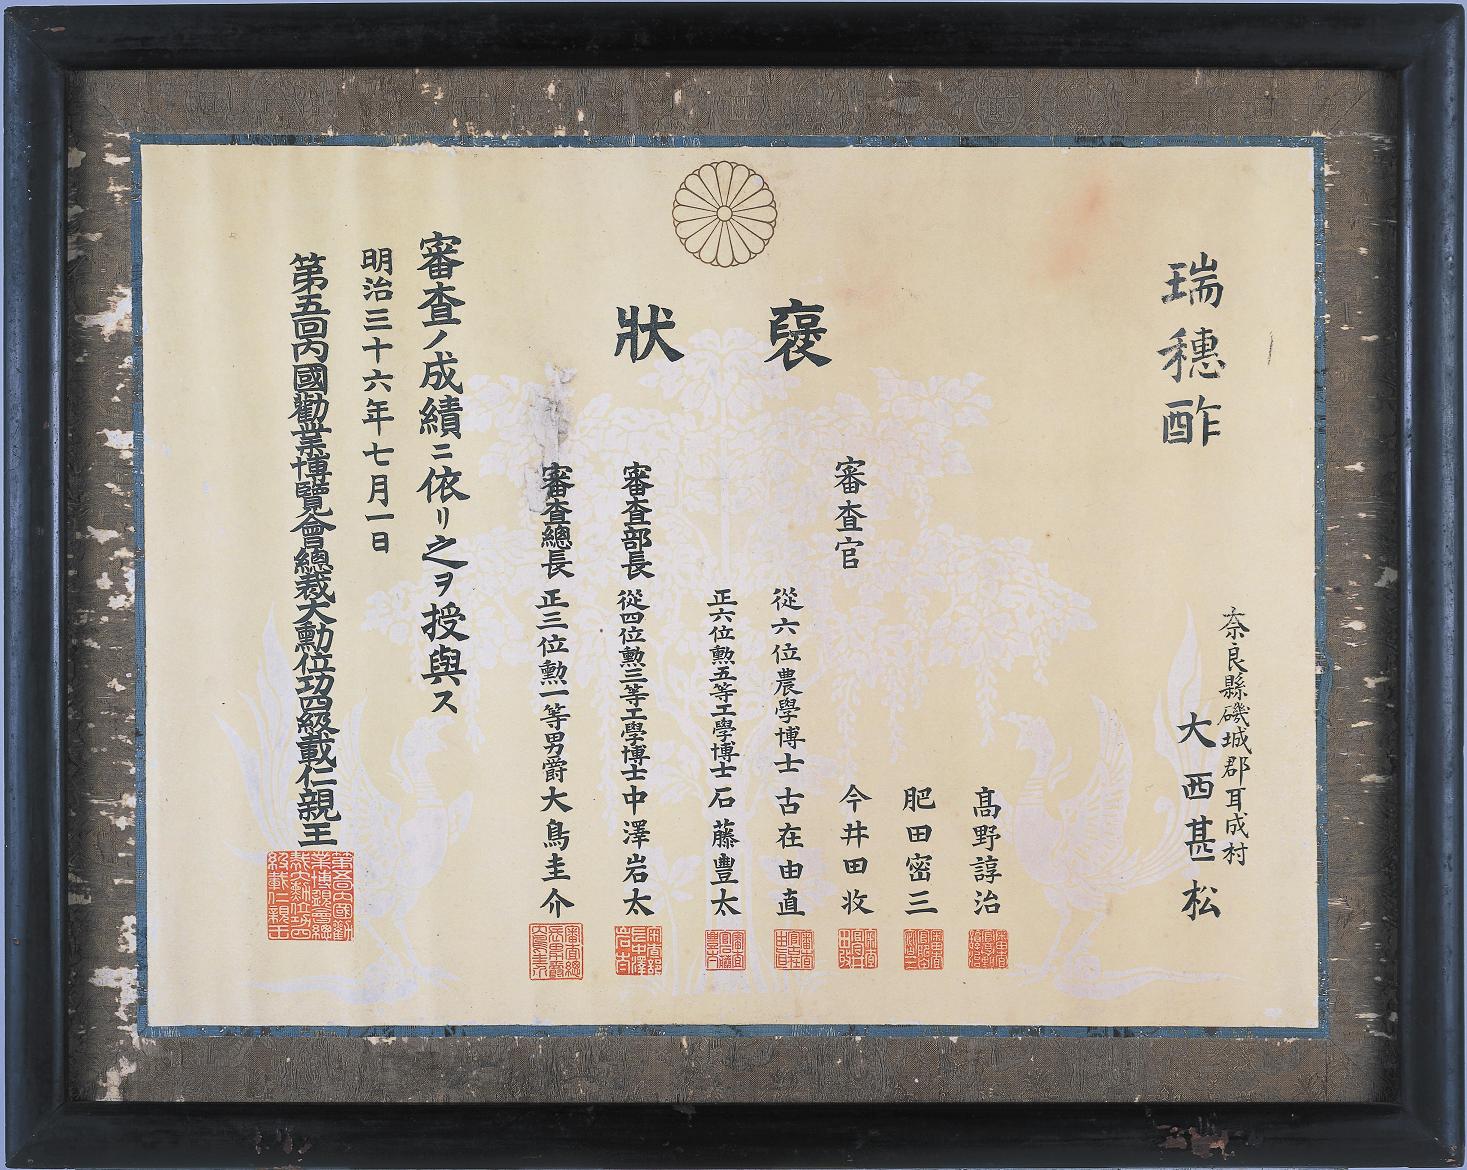 瑞穗酢
奈良縣磯城郡耳成村
大西甚松
褒狀
審査官
髙野諄治
肥田密三
今井田收
從六位農學博士古在由直
正六位勲五等工學博士石藤豊太
審査部長從四位勲三等工學博士中澤岩太
審査總長正三位勲一等男爵大鳥圭介
審査ノ成績ニ依リ之ヲ授與ス
明治三十六年七月一日
第五回内國勸業博覽會總裁大勳位功四級載仁親王